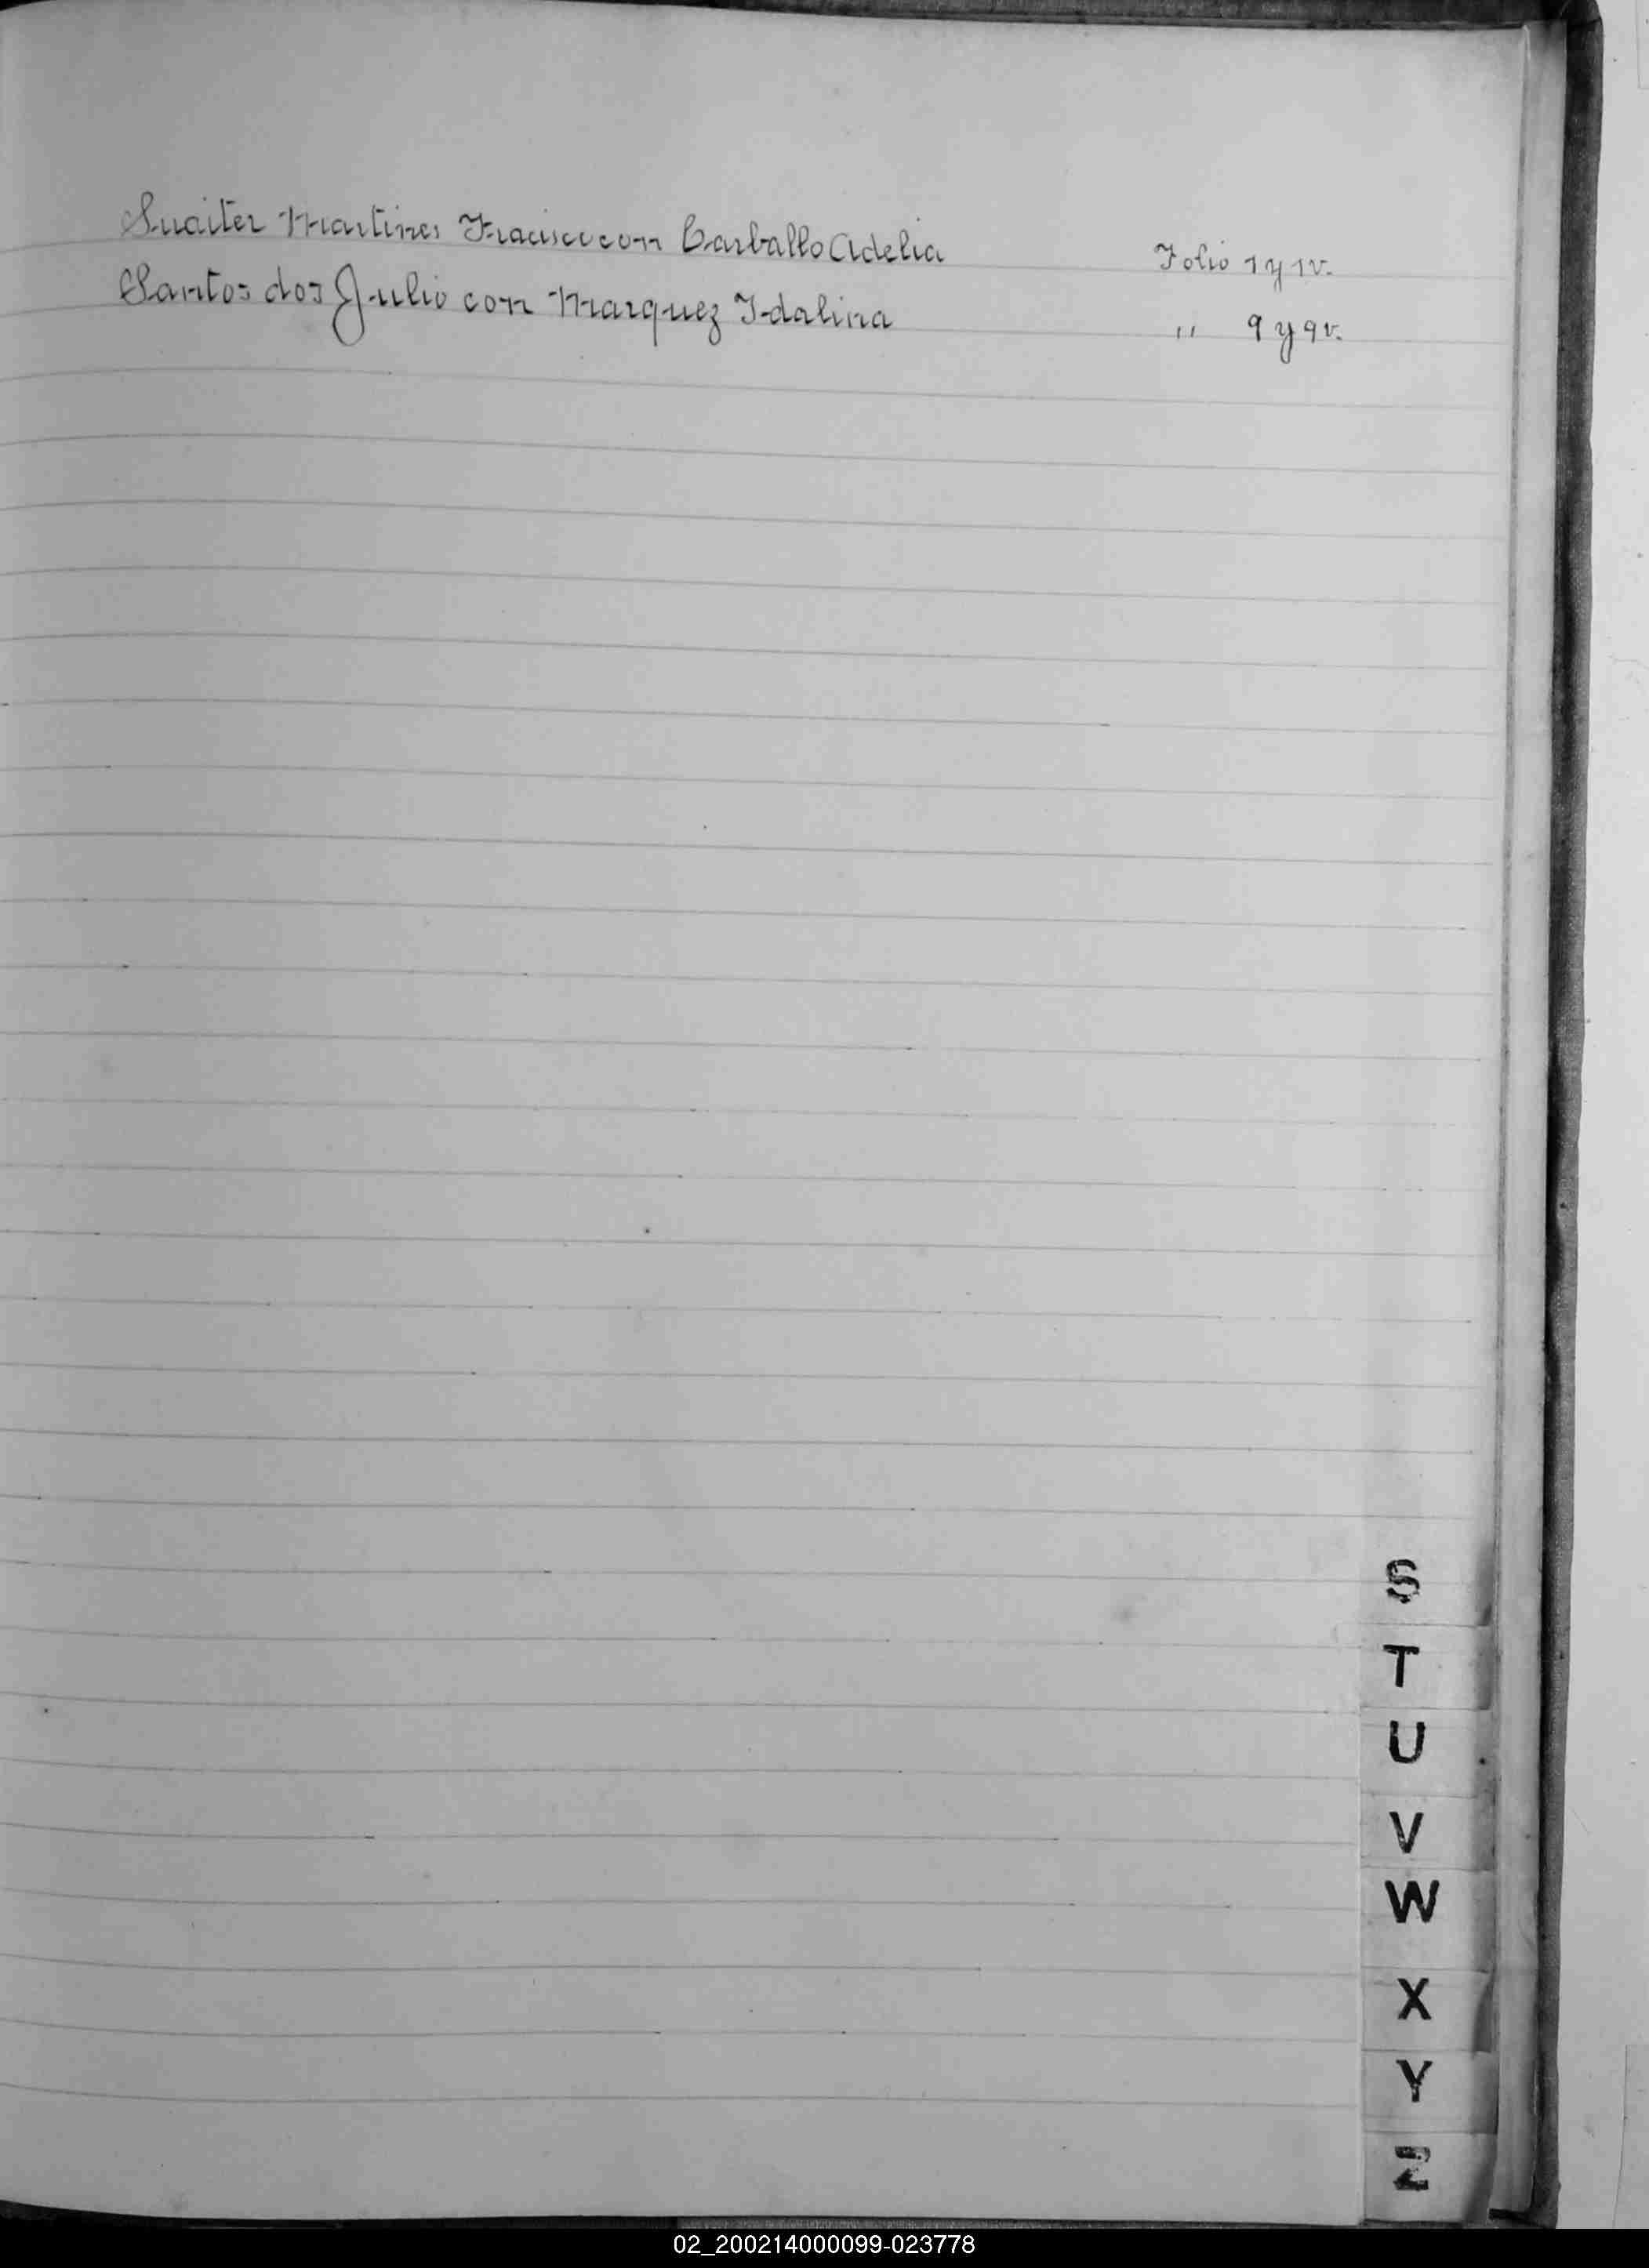 Suaiter Martines Fracisco con Carballo Adelia Folio 1 y 1v.
Santos dos Julio con Marquez Idalina " 9 y 9v.
S
T
U
V
W
X
Y
Z
02_200214000099-023778